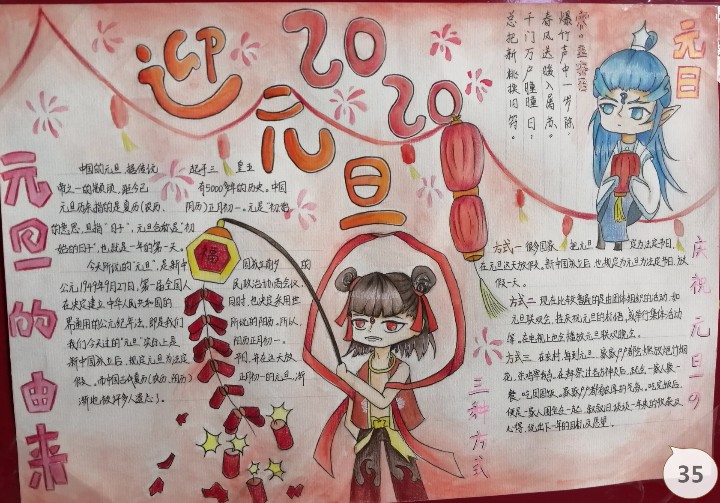 迎
2020
元旦
元旦
爆竹声中一岁除，
春风送暖入屠苏。
千门万户曈曈日，
总把新桃换旧符。
元旦的由来
中国的元旦，据传说 起于三 皇五
帝之一的颛顼，距今已 有5000多年的历史。中国
元旦历来指的是夏历(农历、 阴历)正月初一。元是"初始
的意思，旦指"日子"，元旦合称是"初
始的日子"，也就是一年的第一天。
今天所说的"元旦"，是新中 国成立前夕 的
公元1949年9月27日，第一届全国人 民政治协商会议，
在决定建立中华人民共和国的 同时，也决定采用世
界通用的公元纪年法，即是我们 所说的阳历。所以，
我们今天过的"元旦"实际上是 阳历正月初一。
新中国成立后，规定元旦为法定 节日，并在这天放
假。而中国古代夏历(农历、阴历) 正月初一的元旦，渐
渐地被好多人遗忘了。
福
三种方式
庆祝元旦
方式一 很多国家 把元旦 定为法定节日，
在元旦这天放假。新中国成立后，也规定为元旦为法定节日，放
假一天。
方式二 现在比较普遍的是由团体组织的活动，如
元旦联欢会、挂庆祝元旦的标语，或举行集体活动
等，在电视上也会播放元旦联欢晚会。
方式三 在农村，每到元旦，家家户户都会燃放炮竹烟
花，杀鸡宰鹅，在拜祭过各方神灵后，就会一家人聚一
餐，吃团圆饭。
35